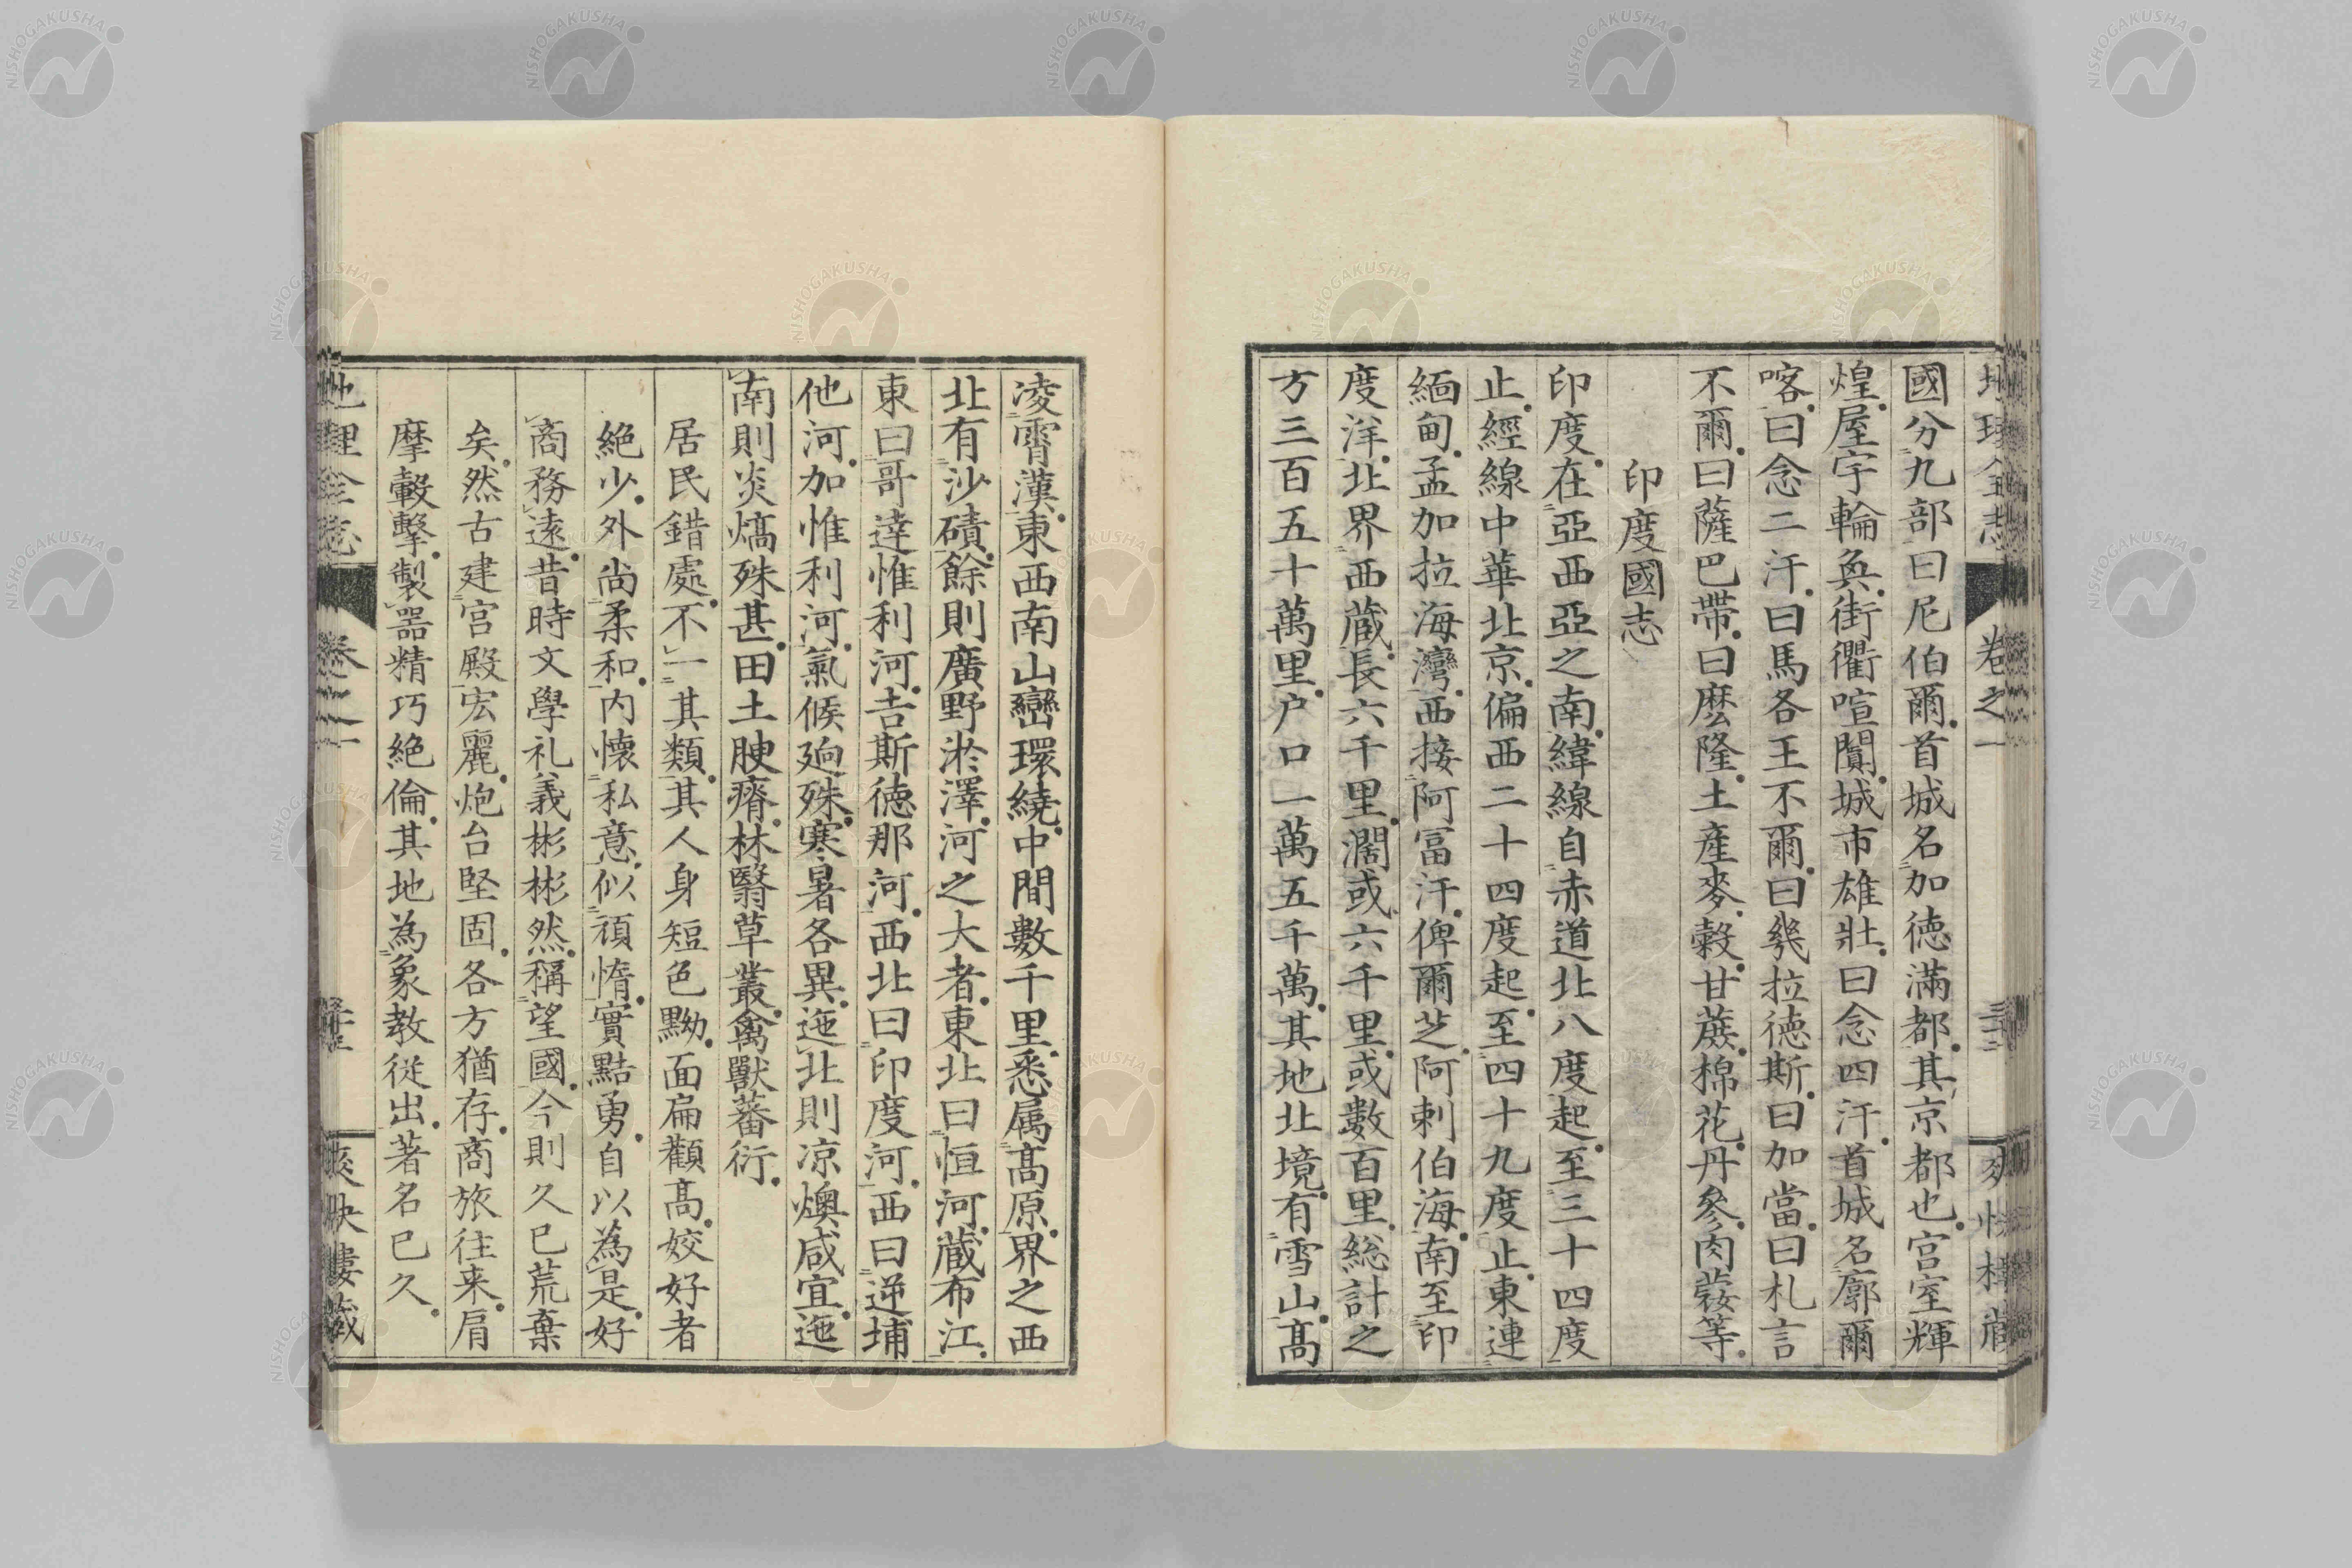 國分九部曰尼伯爾首城名加德滿都其京都也宮室輝
煌屋宇輪奐街衢喧闐城市雄壯曰念四汗首城名廓爾
喀曰念二汗曰馬各王不爾曰幾拉德斯曰加當曰札言
不爾曰薩巴帶曰麼隆土產麥穀甘蔗棉花丹參肉蓯等
印度國志
印度在亞西亞之南緯線自赤道北八度起至三十四度
止經線中華北京偏西二十四度起至四十九度止東連
緬甸孟加拉海灣西接阿富汗俾爾芝阿剌伯海南至印
度洋北界西藏長六千里濶或六千里或數百里総計之
方三百五十萬里户口一萬五千萬其地北境有雪山髙
凌霄漢東西南山巒環繞中間數千里悉属髙原界之西
北有沙磧餘則廣野淤澤河之大者東北曰恒河藏布江
東曰哥達惟利河吉斯德那河西北曰印度河西曰逆埔
他河加惟利河氣候逈殊寒暑各異迤北則凉燠咸宜迤
南則炎熇殊甚田土腴瘠林翳草叢禽獸蕃衍
居民錯處不一其類其人身短色黝面扁顴髙姣好者
絕少外尚柔和内懷私意似頑惰實點勇自以為是好
商務遠昔時文學礼義彬彬然稱望國今則久已荒棄
矣然古建宮殿宏麗炮台堅固各方猶存商旅往来肩
摩轂擊製器精巧絕倫其地為象教從出著名已久
地理全志 卷之一
NISHOGAKUSHA